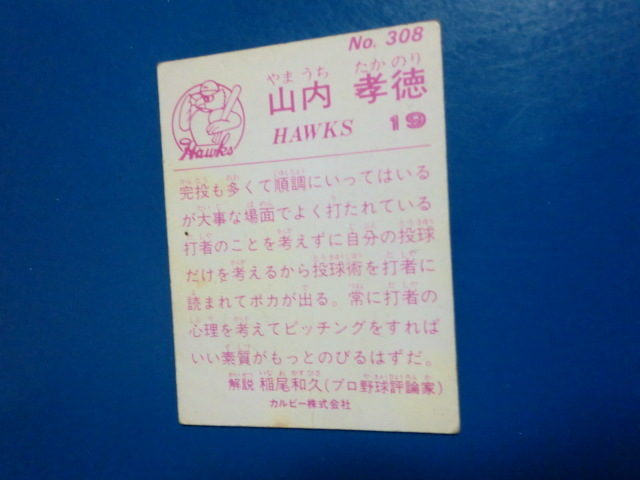 No. 308
やまうち たかのり
山内 孝徳
Hawks
HAWKS 19
完投も多くて順調にいってはいる
が大事な場面でよく打たれている
打者のことを考えずに自分の投球
だけを考えるから投球術を打者に
読まれてポカが出る。常に打者の
心理を考えてピッチングをすれば
いい素質がもっとのびるはずだ。
解説 稲尾和久(プロ野球評論家)
カルビー株式会社